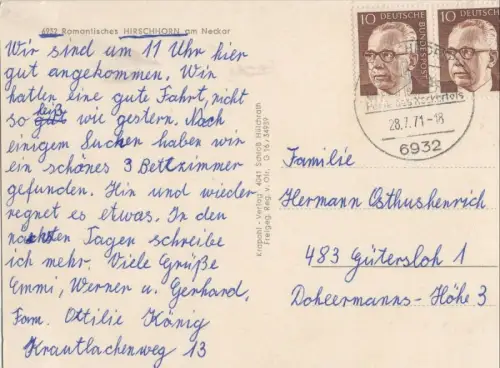 6932 Romantisches HIRSCHHORN am Neckar
Wir sind um 11 Uhr hier
gut angekommen. Wir
hatten eine gute Fahrt, nicht
so heiß wie gestern. Nach
einigem Suchen haben wir
ein schönes 3 Bettzimmer
gefunden. Hin und wieder
regnet es etwas. In den
nächsten Tagen schreibe
ich mehr. Viele Grüße
Emmi, Werner u. Gerhard.
Fam. Ottilie König
Krautlachenweg 13
Krapohl-Verlag 4041 Schloß Hülchrath
Freigeg. Reg. v. Obr.
10 DEUTSCHE BUNDESPOST
10 DEUTSCHE
28.7.71-18
6932
Familie
Hermann Osthushenrich
483 Gütersloh 1
Doheermanns-Höhe 3